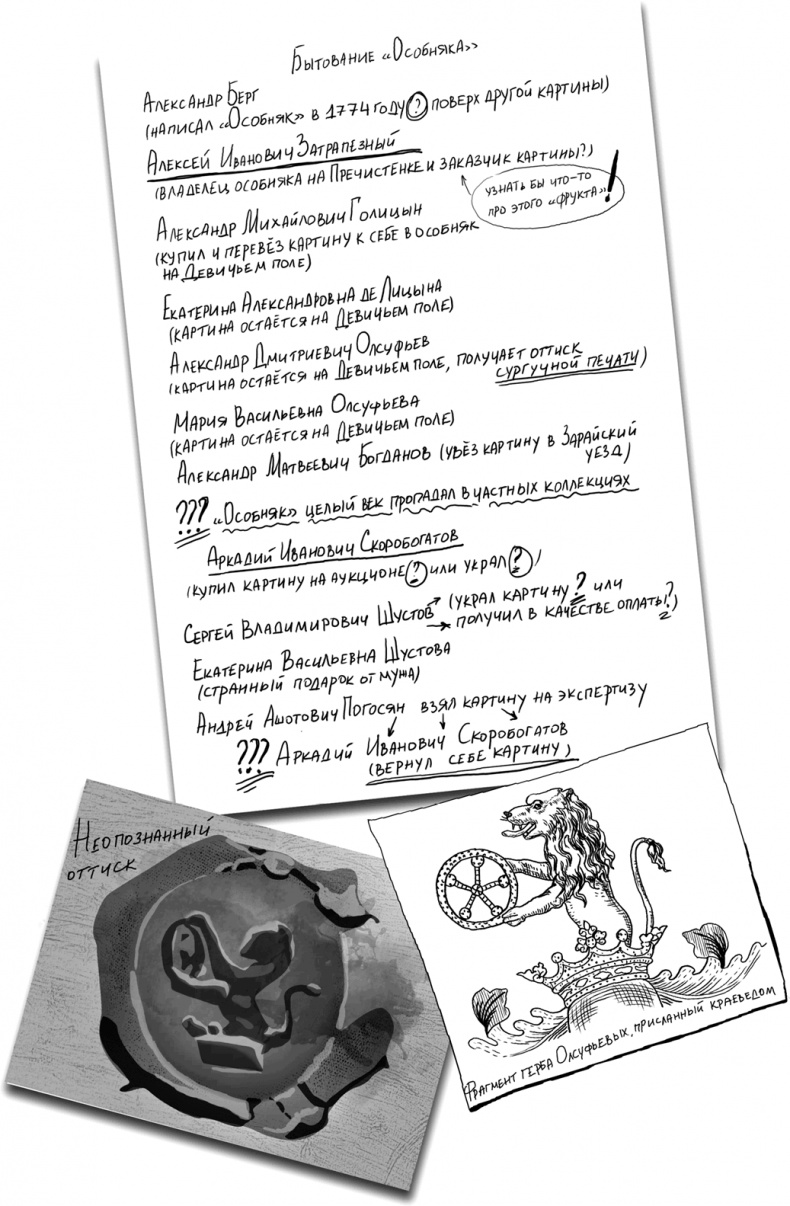 Бытование «Особняка»
Александр Берг
(написал «Особняк» в 1774 году ? поверх другой картины)
Алексей Иванович Затрапезный
(владелец особняка на Пречистенке и заказчик картины?)
узнать бы что-то
про этого «фрукта»!
Александр Михайлович Голицын
(купил и перевёз картину к себе в особняк
на Девичьем поле)
Екатерина Александровна де Лицына
(картина остаётся на Девичьем поле)
Александр Дмитриевич Олсуфьев
(картина остаётся на Девичьем поле, получает оттиск
сургучной печати)
Мария Васильевна Олсуфьева
(картина остаётся на Девичьем поле)
Александр Матвеевич Богданов (увёз картину в Зарайский
уезд)
??? «Особняк» целый век пропадал в частных коллекциях
Аркадий Иванович Скоробогатов
(купил картину на аукционе ? или украл ?)
Сергей Владимирович Шустов → (украл картину ? или
→ получил в качестве оплаты?)
Екатерина Васильевна Шустова
(странный подарок от мужа)
Андрей Ашотович Погосян взял картину на экспертизу
??? Аркадий Иванович Скоробогатов
(вернул себе картину)
Неопознанный
оттиск
Фрагмент герба Олсуфьевых, присланный краеведом